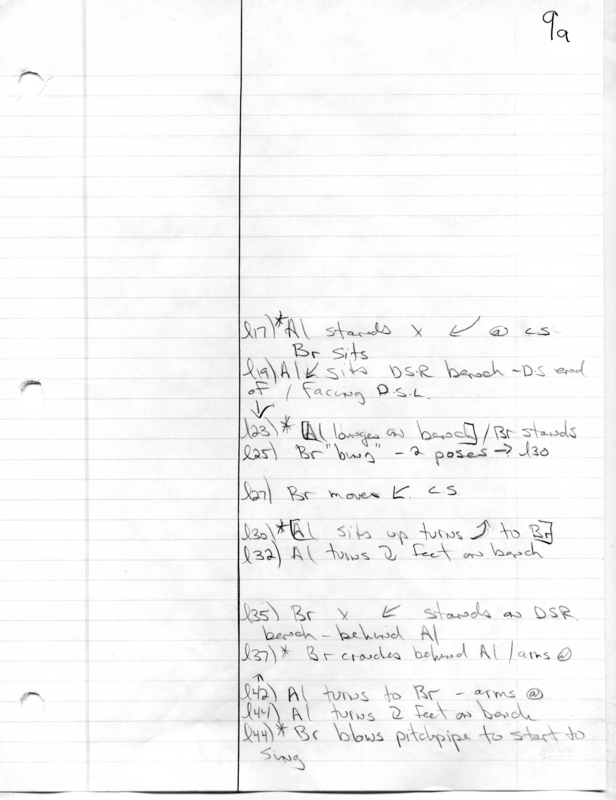 9a
l17)*Al stands X ↙ @ C.S.
Br sits
l19) Al ↙ sits D.S.R bench - D.S end
of / facing D.S.L.
↓
l23)* [Al lounges on bench] / Br stands
l25) Br "bung" - 2 poses → l30
l27) Br moves ↙ C.S.
l30)* [Al sits up turns ⤴ to Br]
l32) Al turns 2 feet on bench
l35) Br X ↙ stands on DSR
bench - behind Al
l37)* Br crouches behind Al / arms @
↑
l42) Al turns to Br - arms @
l44) Al turns 2 feet on bench
l44)* Br blows pitchpipe to start to
sing